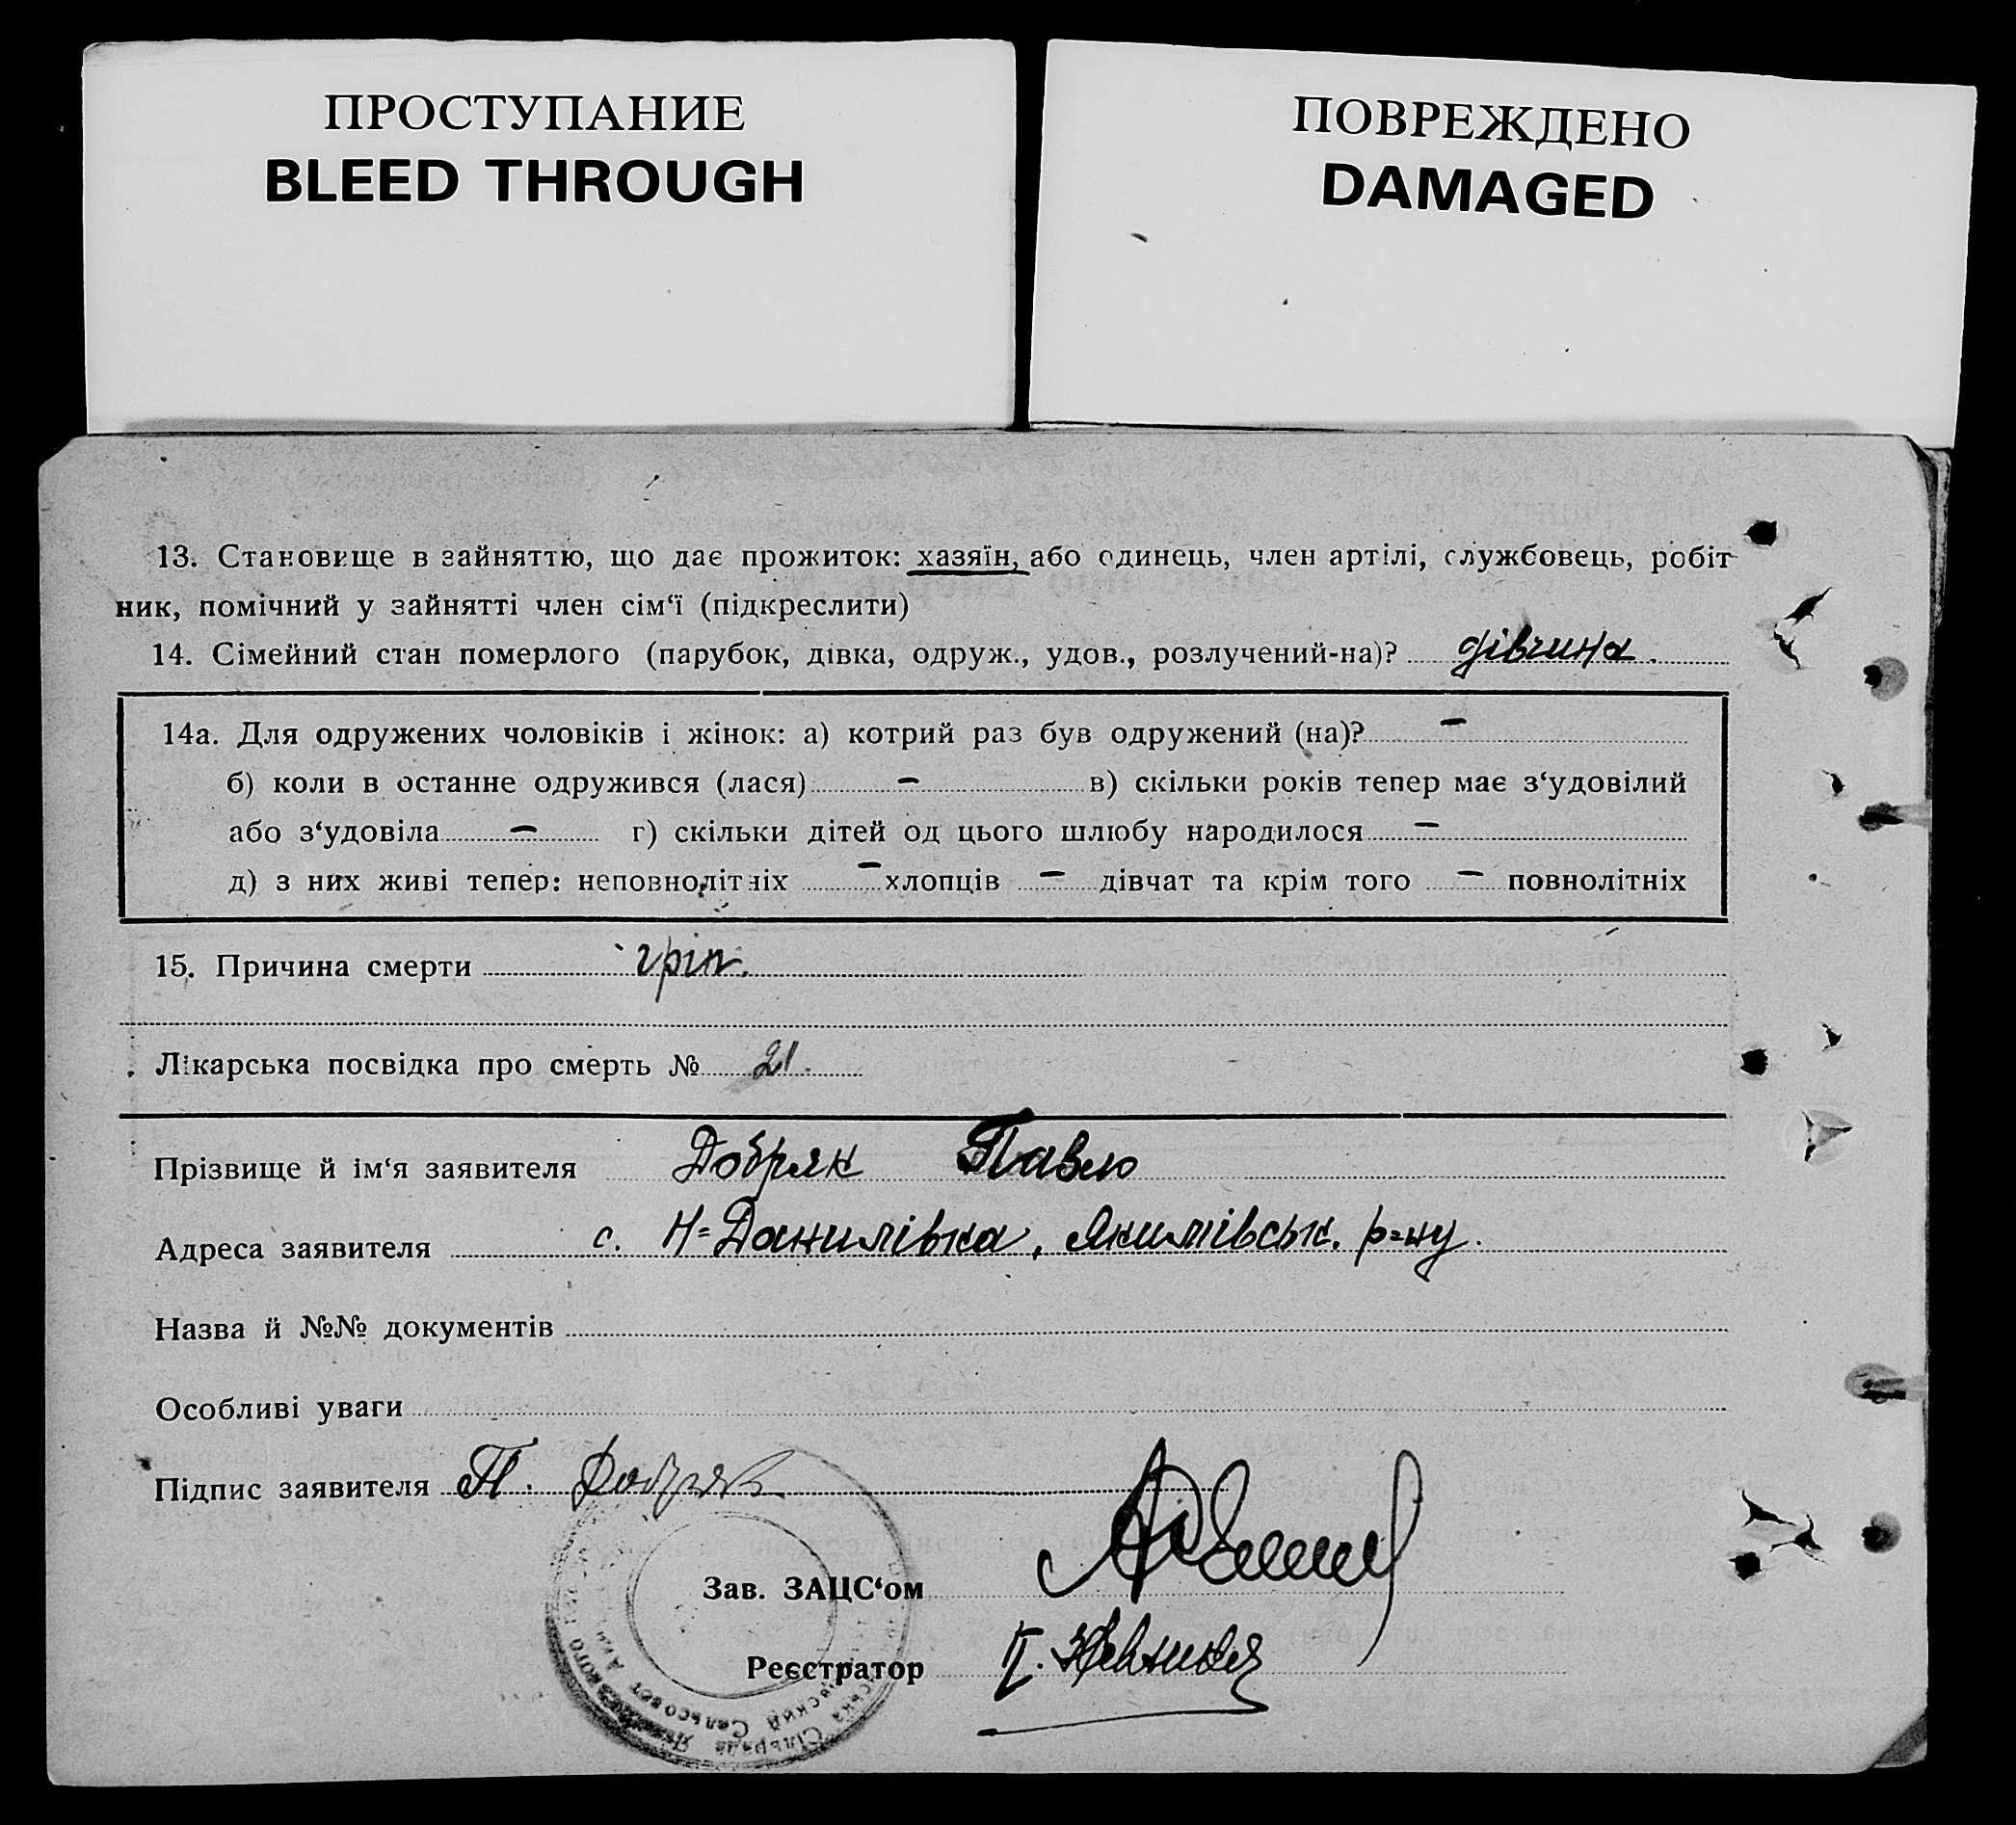 ПРОСТУПАНИЕ
BLEED THROUGH
ПОВРЕЖДЕНО
DAMAGED
13. Становище в зайняттю, що дає прожиток: хазяїн, або одинець, член артілі, службовець, робіт-
ник, помічний у зайнятті член сім‘ї (підкреслити)
14. Сімейний стан померлого (парубок, дівка, одруж., удов., розлучений-на)? дівчина.
14а. Для одружених чоловіків і жінок: а) котрий раз був одружений (на)? –
б) коли в останне одружився (лася) – в) скільки років тепер має з‘удовілий
або з‘удовіла – г) скільки дітей од цього шлюбу народилося –
д) з них живі тепер: неповнолітніх – хлопців – дівчат та крім того – повнолітніх
15. Причина смерти гріп.
Лікарська посвідка про смерть № 21.
Прізвище й ім‘я заявителя Добряк Павло
Адреса заявителя с. Н=Данилівка, Якимівськ. р=ну.
Назва й №№ документів
Особливі уваги
Підпис заявителя П. Добряк
Зав. ЗАЦС‘ом
Реєстратор
Сільрада
Сельсовет